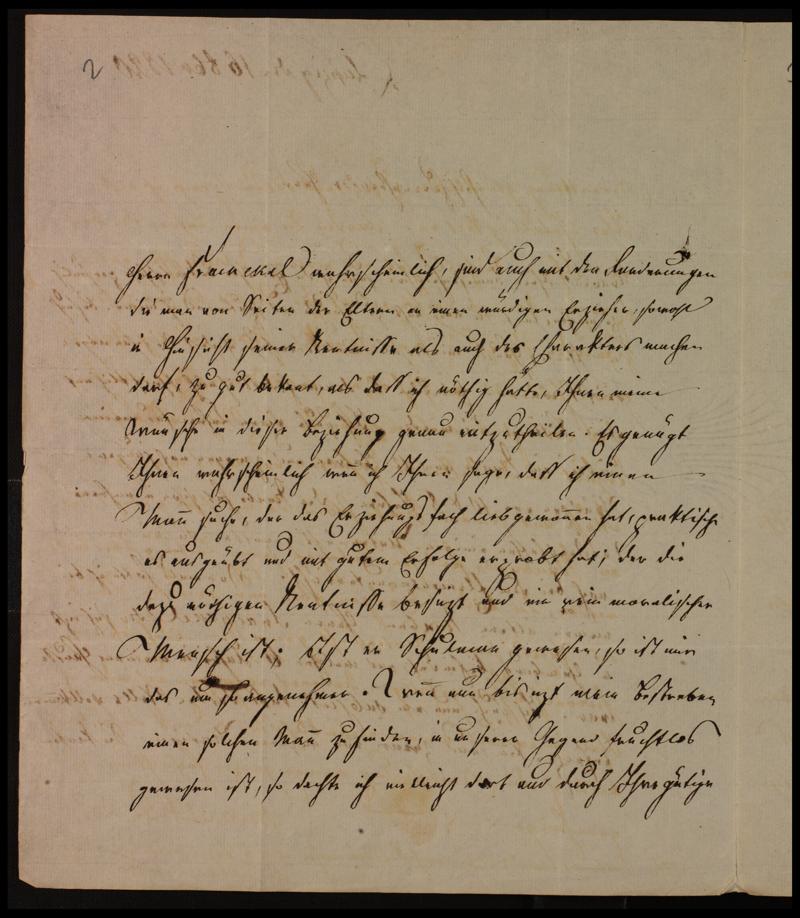 2
Herrn Fraenckel wahrscheinlich, sind auch mit den Forderungen
die man von Seiten der Eltern an einen würdigen Erzieher, sowohl
in Hinsicht seiner Kentnisse als auch des Charakters machen
darf, zu gut bekant, als daß ich nöthig hätte, Ihnen meine
Wünsche in dieser Beziehung genau mitzutheilen. Es genügt
Ihnen wahrscheinlich wen̄ ich Ihnen sage, daß ich einen
Man̄ suche, der das Erziehungsfach liebgewon̄en hat, praktisch
es ausgeübt und mit gutem Erfolge erprobt hat; der die
dazu nöthigen Kentnisse besitzt und ein rein moralischer
Mensch ist. Ist er Schulman gewesen, so ist mir
das um so angenehmer. Den̄ nun bis izt mein Bestreben
einen solchen Man̄ zu finden, in unserer Gegend fruchtlos
gewesen ist, so dachte ich vielleicht dort und durch Ihre gütige